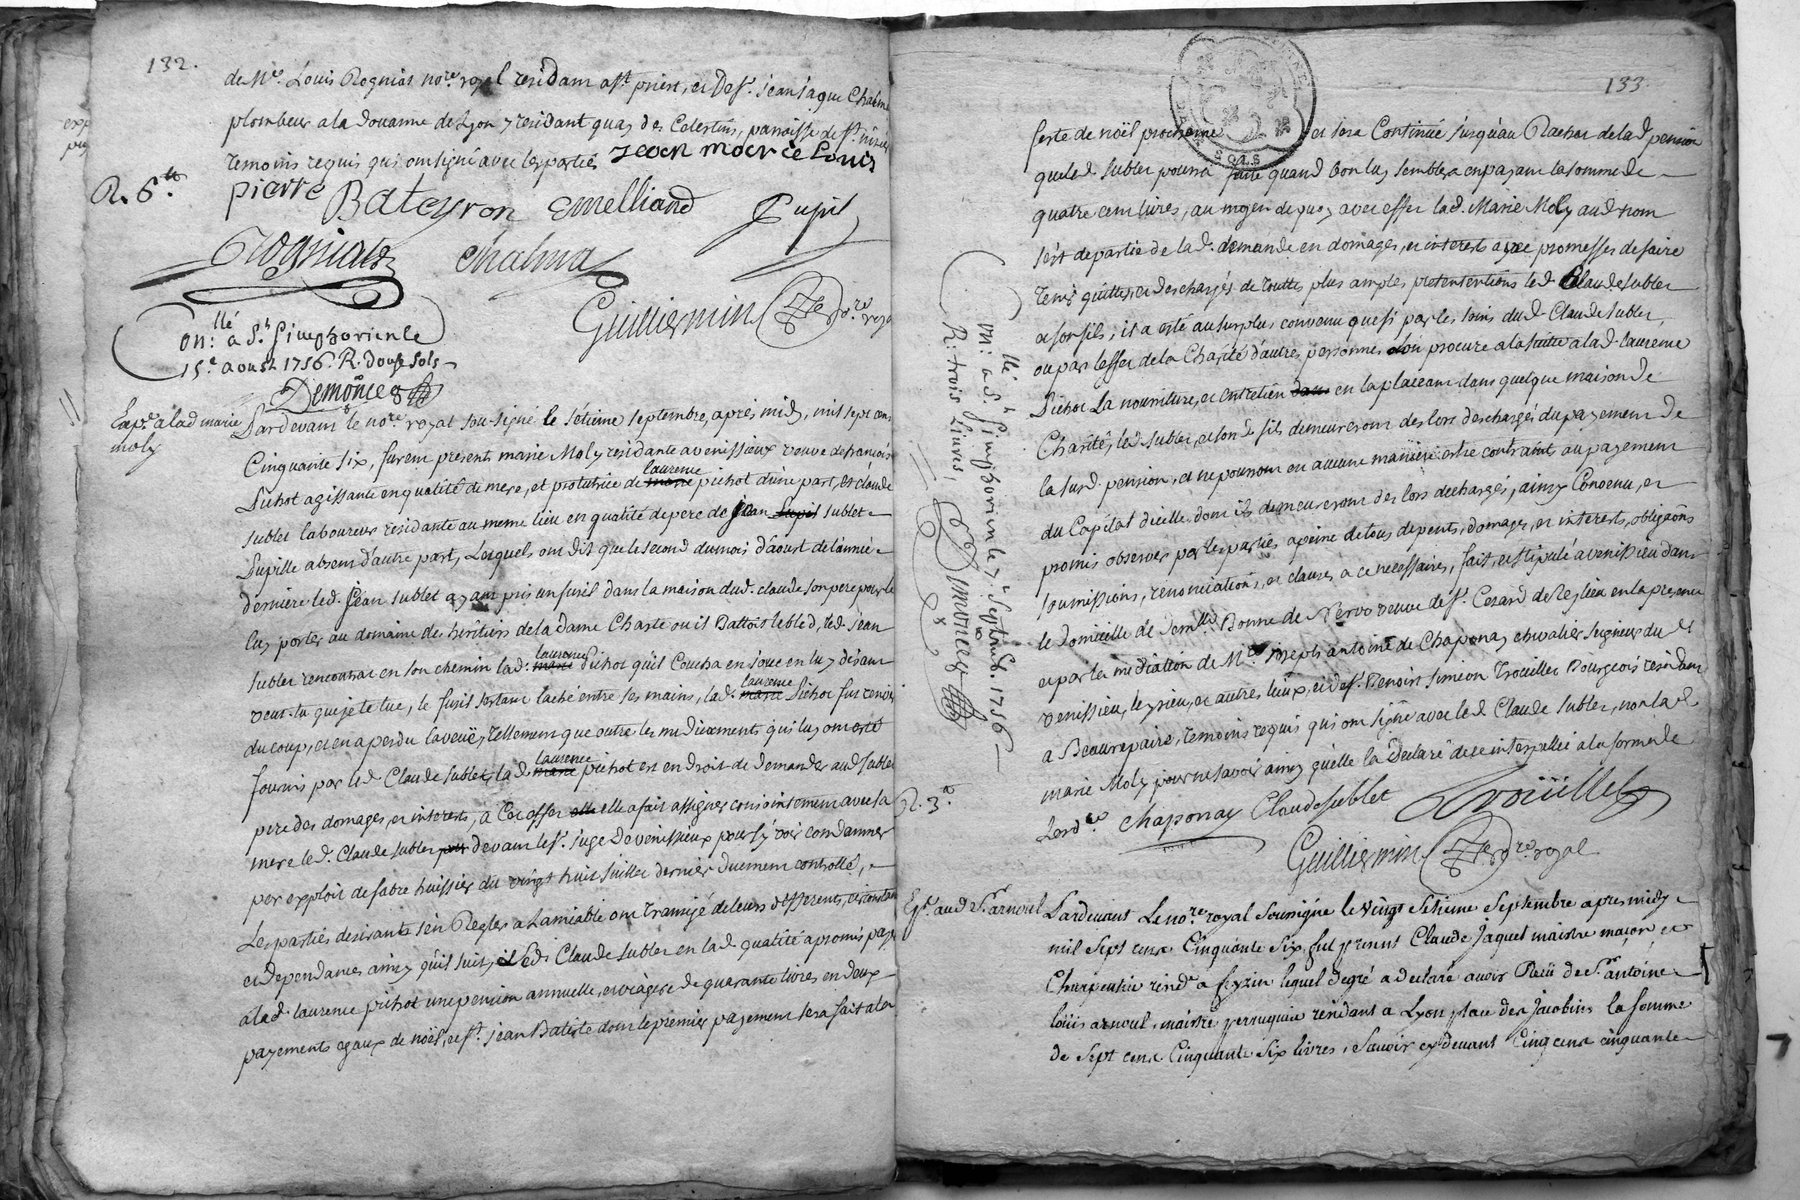 132.
de Mre. Louis Rogniat nore. royal residant a St. priest, et de Sr. jean jaque Chalma
plombeur a la douanne de Lyon y residant quay des Celestins, parroisse de St. nisier
temoins requis qui ont signé avec les parties Jean mocrce Louis
R. 6tt pierre Bateyron Emelliand Pupil
Rogniat Chalma
Guilliermin nore. royal
Onllé: a St. Simphorien le
15e. aoust 1756. R. douze sols
Demoncez
Exp.e a la d marie
moly
Pardevant le nore. royal sou-signé le setieme septembre, après midy, mil sept cens
Cinquante six, furent presents marie Moly residante a venissieux veuve de françois
Pichot agissante en qualité de mere, et protutrice de laurence pichot d'une part, et claude
sublet laboureur residante au meme lieu en qualité de pere de jean sublet
Pupille absent d'autre part, Lesquels ont dit que le second du mois d'aoust de l'année
derniere led. jean sublet ayant pris un fusil dans la maison dud. claude son pere pour le
luy porter au domaine des heritiers de la dame Charte ou il Battoit le bled, led. jean
sublet rencontrat en son chemin lad. laurence Pichot qu'il Coucha en joue en luy disant
veut-tu que je te tue, le fusil s'estant laché entre ses mains, lad. laurence Pichot fut
du coup, et en a perdu la veüe, tellement que outre les medicaments qui luy ont esté
fournis par led Claude sublet, lad. laurence pichot est en droit de demander aud sublet
pere des domages, et interests, a Cet effet elle a fait assigner conjointement avec sa
mere led. Claude sublet devant le Sr. juge de venissieux pour s'y voir condamner
par exploit de fabre huissier du vingt huit juillet dernier duement controllé,
Les parties desirante s'en Regler a Lamiable ont transigé de leurs differents, circonstan
et dependances ainsy qu'il suit, Led. Claude sublet en lad qualité a promis payer
a lad. laurence pichot une pension annuelle, et viagere de quarante livres en deux
payements egaux de noël, et St. jean Batiste dont le premier payement sera fait a la
133
feste de noël prochaine et sera Continué jusqu'au Rachat de lad pension
que led sublet pourra faire quand bon luy semblera en payant la somme de
quatre cent livres, au moyen de quoy avec effet lad. Marie Moly aud nom
s'est departie de lad. demande en domages, et interest avec promesses de faire
tenir quittes, et deschargés de touttes plus amples pretentions led Claude sublet
et son fils; il a esté au surplus convenu que si par les soins dud. Claude sublet,
ou par l'effet de la Charité d'autres personnes l'on procure a la suitte a lad. laurence
Pichot La nourriture, et entretien en la placeant dans quelque maison de
Charité, led. sublet, et son d fils demeureront des lors deschargés du payement de
la susd. pension, et ne pourront en aucune maniere estre contraints au payement
du Capital d'icelle dont ils demeureront des lors dechargés, ainsy Convenu, et
promis observer par les parties a peine de tous depents, domages, et interests, obligaôns
soumissions, renonciations, et clauses a ce necessaires, fait, et stipulé a venissieu dans
le domicille de demlle. Bonne de Nervo veuve de Sr. Cesard de Reglieu en la presence
et par la mediation de Mre. joseph antoine de Chaponay chevalier seigneur du d
venissieu, leysieu, et autres lieux, et de Sr. Benoist simeon Troüillet Bourgeois residant
a Beaurepaire, temoins requis qui ont signé avec led Claude sublet, non lad
marie Moly pour ne savoir ainsy qu'elle la declaré de ce interpellée a la forme de
Lord.ce Chaponay Claude sublet Troüillet
R. 3tt.
Guilliermin nore. royal
Onllé: a St. Simphorien le 7e Septemb. 1756
R: trois Livres,
Demoncez
Exp. aud Sr. arnoul
Pardevant Le nore. royal Sousigné le vingt Setieme Septembre apres midy
mil Sept cens Cinquante Six fut present Claude Jaquet maistre maçon et
Charpentier resid.t a feyzin lequel de gré a declaré avoir Reçü de Sr. antoine
loüis arnoul, maistre perruquier residant a Lyon place des Jacobins la somme
de Sept cens Cinquante Six livres, Sçavoir cy devant Cinq cens cinquante